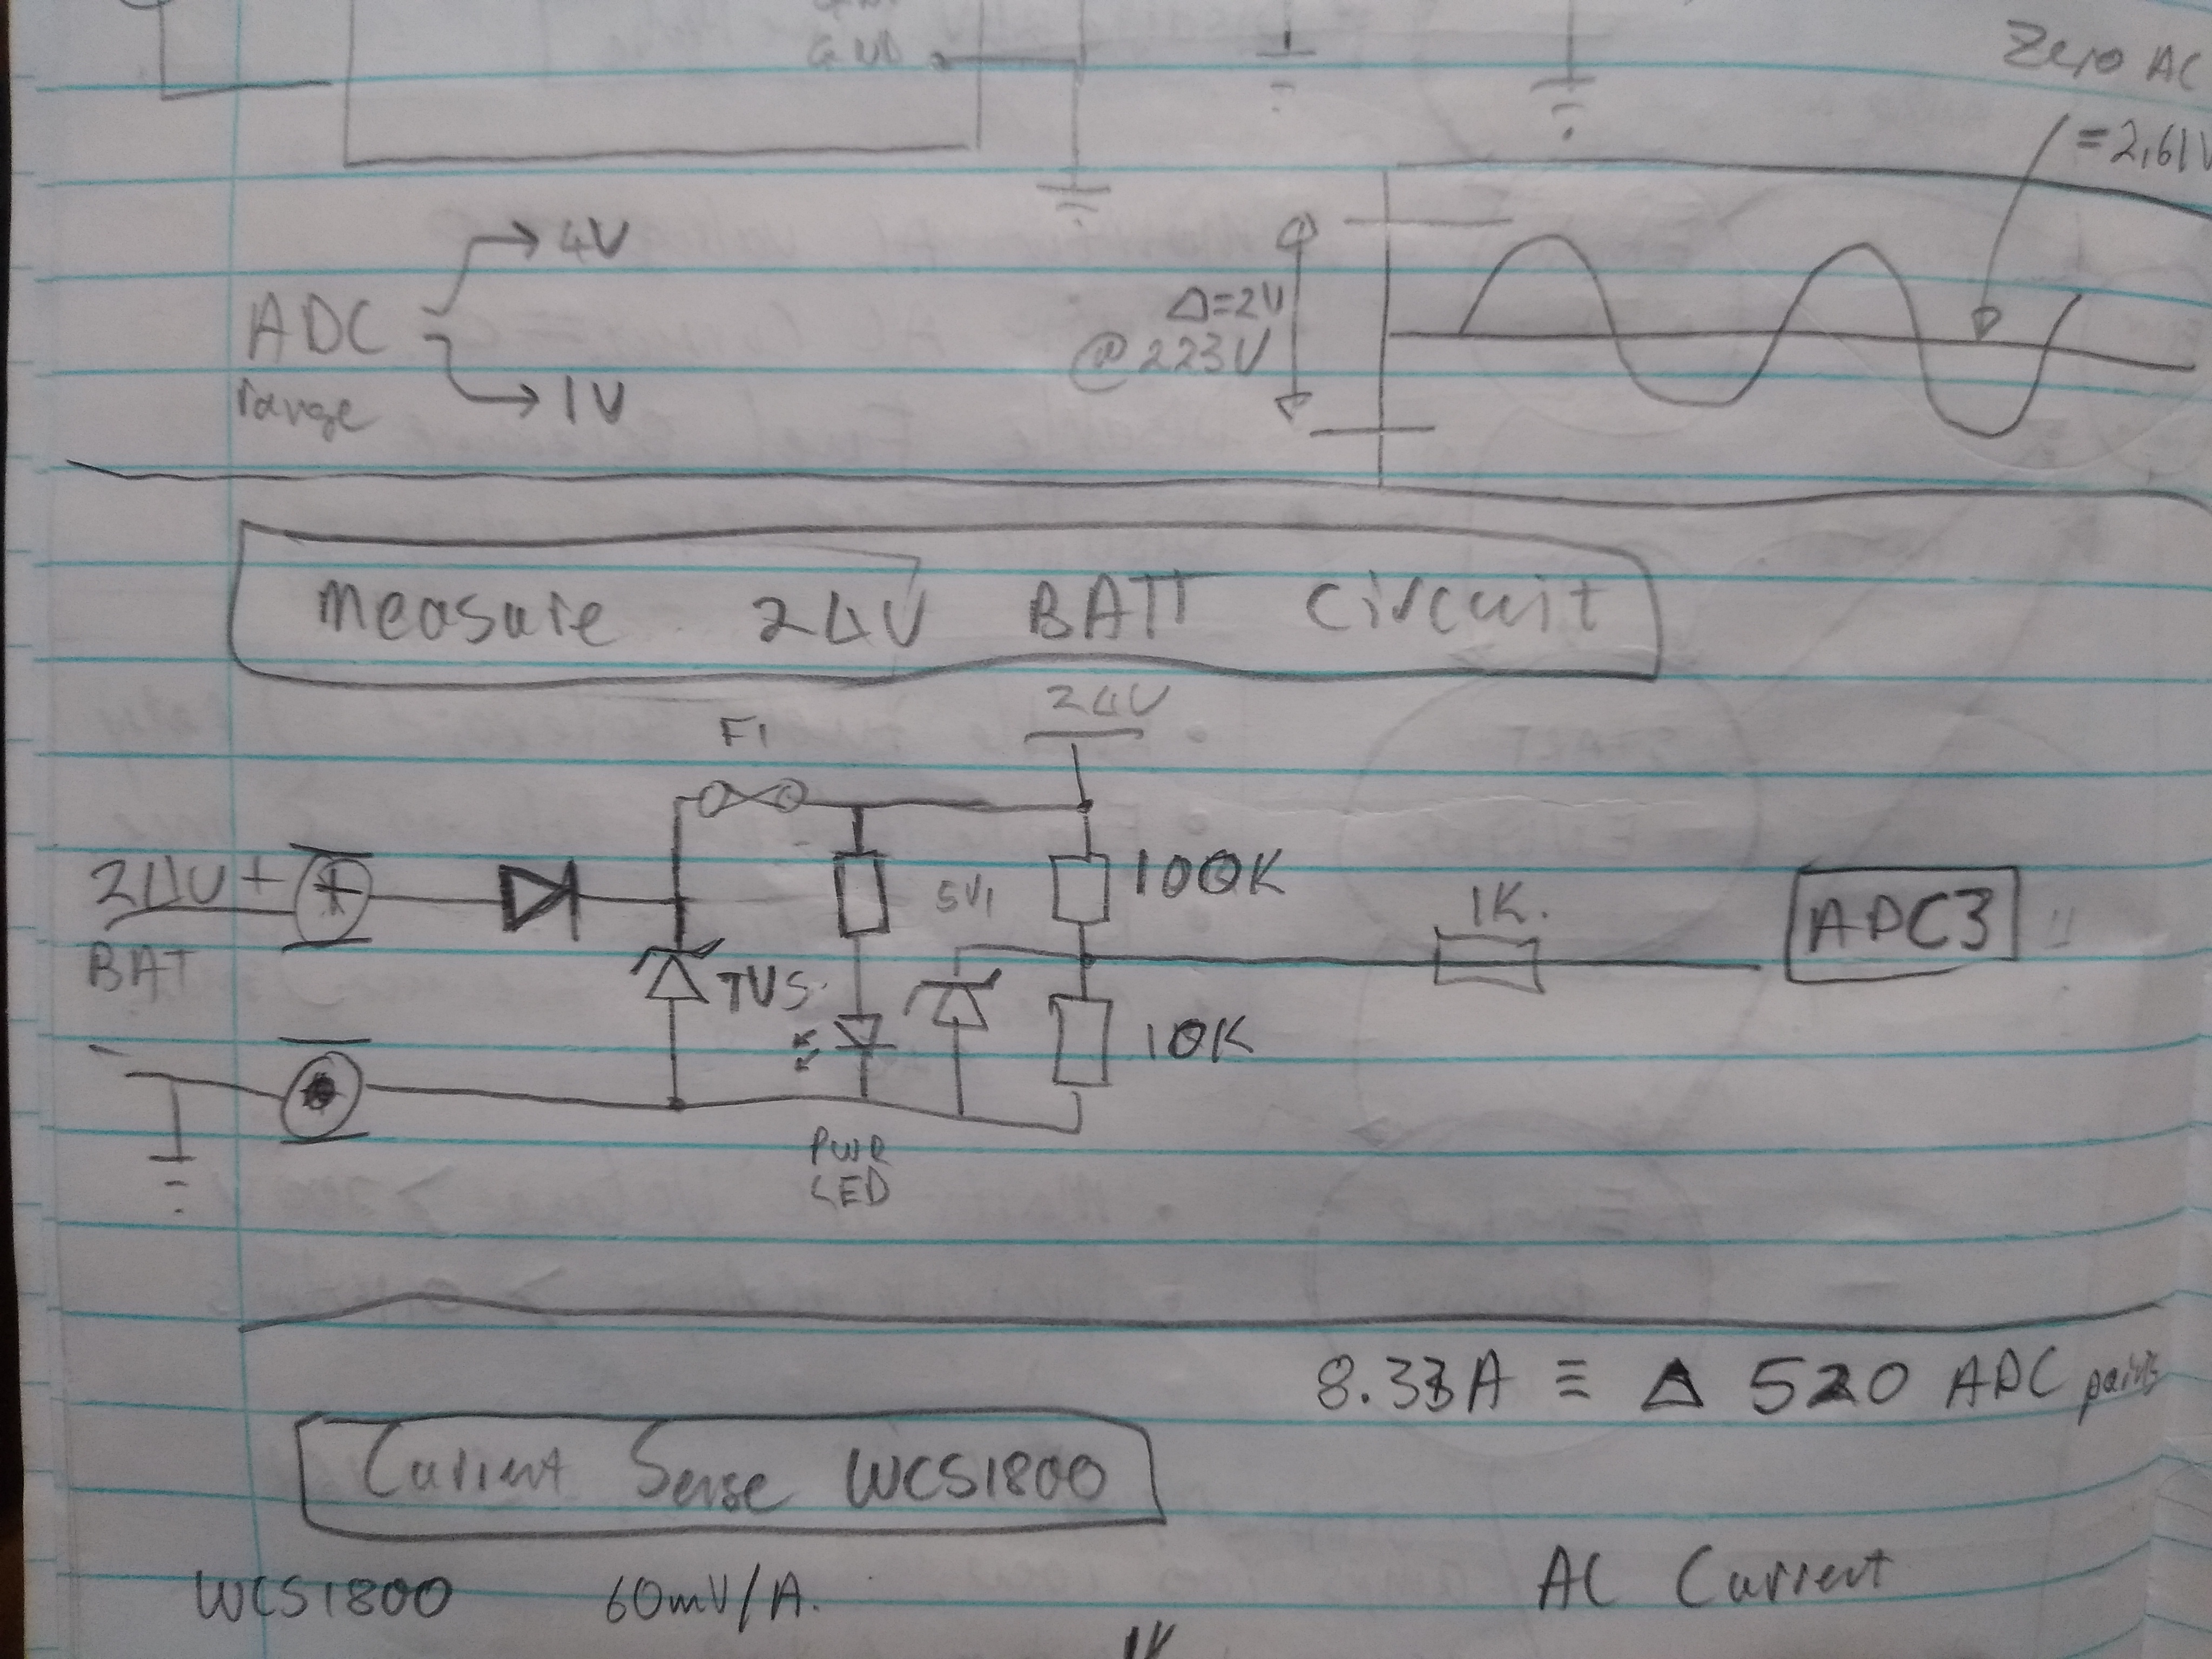 GND
Zero AC
= 2,61V
4V
ADC
range
1V
Δ=2V
@ 223V
Measure 24V BATT Circuit
24V
F1
24V +
BAT
+
5V1
100K
1K.
ADC3
TVS
10K
-
PWR
LED
8.33A ≡ Δ 520 ADC points
Current Sense WCS1800
WCS1800 60mV/A.
AC Current
1K